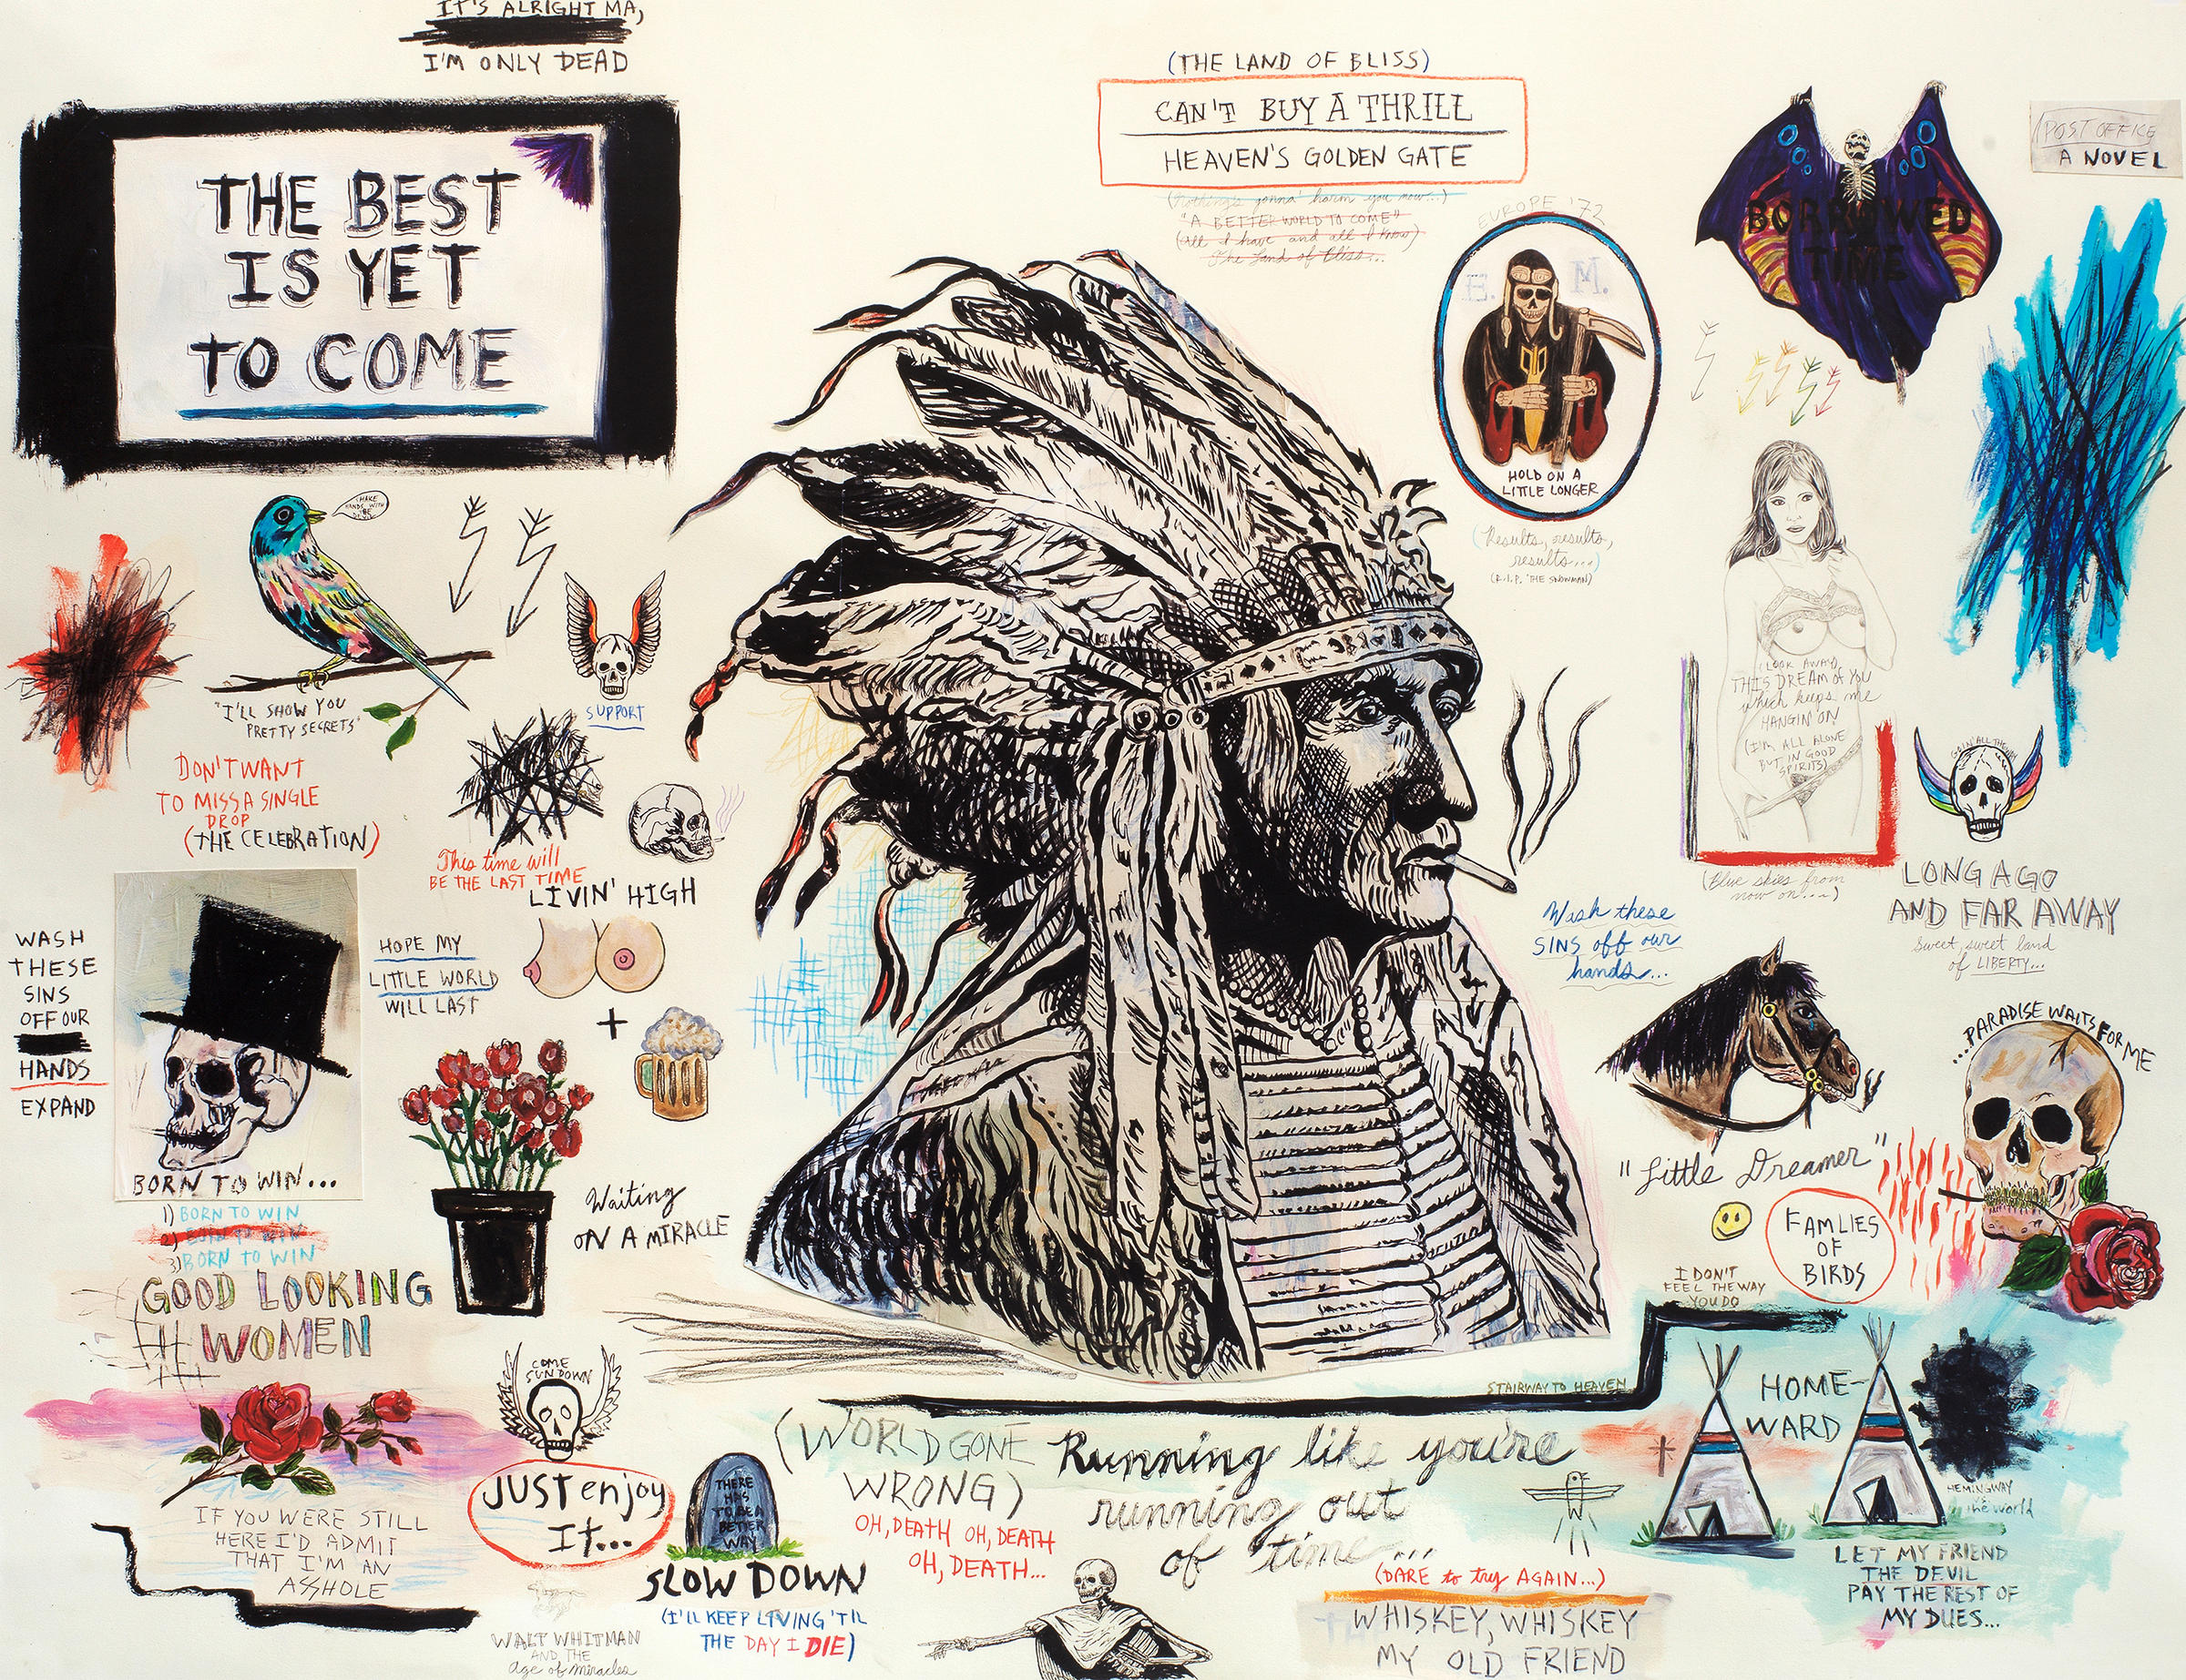 IT'S ALRIGHT MA,
I'M ONLY DEAD
THE BEST
IS YET
TO COME
(THE LAND OF BLISS)
CAN'T BUY A THRILL
HEAVEN'S GOLDEN GATE
(Nothing's gonna harm you now...)
"A BETTER WORLD TO COME"
(All I have and all I know)
The Land of Bliss...
EUROPE '72
E. M.
HOLD ON A
LITTLE LONGER
(Results, results,
results...)
(R.I.P. THE SNOWMAN)
BORROWED
TIME
POST OFFICE
A NOVEL
"I'LL SHOW YOU
PRETTY SECRETS"
SUPPORT
DON'T WANT
TO MISS A SINGLE
DROP
(THE CELEBRATION)
This time will
BE THE LAST TIME
LIVIN' HIGH
(LOOK AWAY)
THIS DREAM OF YOU
which keeps me
HANGIN' ON
(I'M ALL ALONE
BUT IN GOOD
SPIRITS)
(Blue skies from
now on...)
GOIN' ALL THE WAY
LONG AGO
AND FAR AWAY
Sweet, sweet land
of LIBERTY...
WASH
THESE
SINS
OFF OUR
HANDS
EXPAND
HOPE MY
LITTLE WORLD
WILL LAST
+
Wash these
SINS off our
hands...
BORN TO WIN...
1) BORN TO WIN
2) BORN TO WIN
3) BORN TO WIN
Waiting
ON A MIRACLE
...PARADISE WAITS FOR ME
"Little Dreamer"
FAMLIES
OF
BIRDS
I DON'T
FEEL THE WAY
YOU DO
GOOD LOOKING
WOMEN
COME
SUNDOWN
JUST enjoy
IT...
IF YOU WERE STILL
HERE I'D ADMIT
THAT I'M AN
ASSHOLE
THERE
HAS
TO BE A
BETTER
WAY
SLOW DOWN
(I'LL KEEP LIVING 'TIL
THE DAY I DIE)
WALT WHITMAN
AND THE
Age of Miracles
(WORLD GONE
WRONG)
OH, DEATH OH, DEATH
OH, DEATH...
Running like you're
running out
of time...
STAIRWAY TO HEAVEN
(DARE to try AGAIN...)
WHISKEY, WHISKEY
MY OLD FRIEND
HOME-
WARD
HEMINGWAY
the world
LET MY FRIEND
THE DEVIL
PAY THE REST OF
MY DUES...